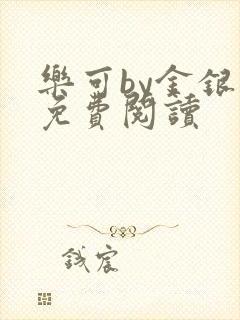 樂可by金銀
免費閱讀
錢宸